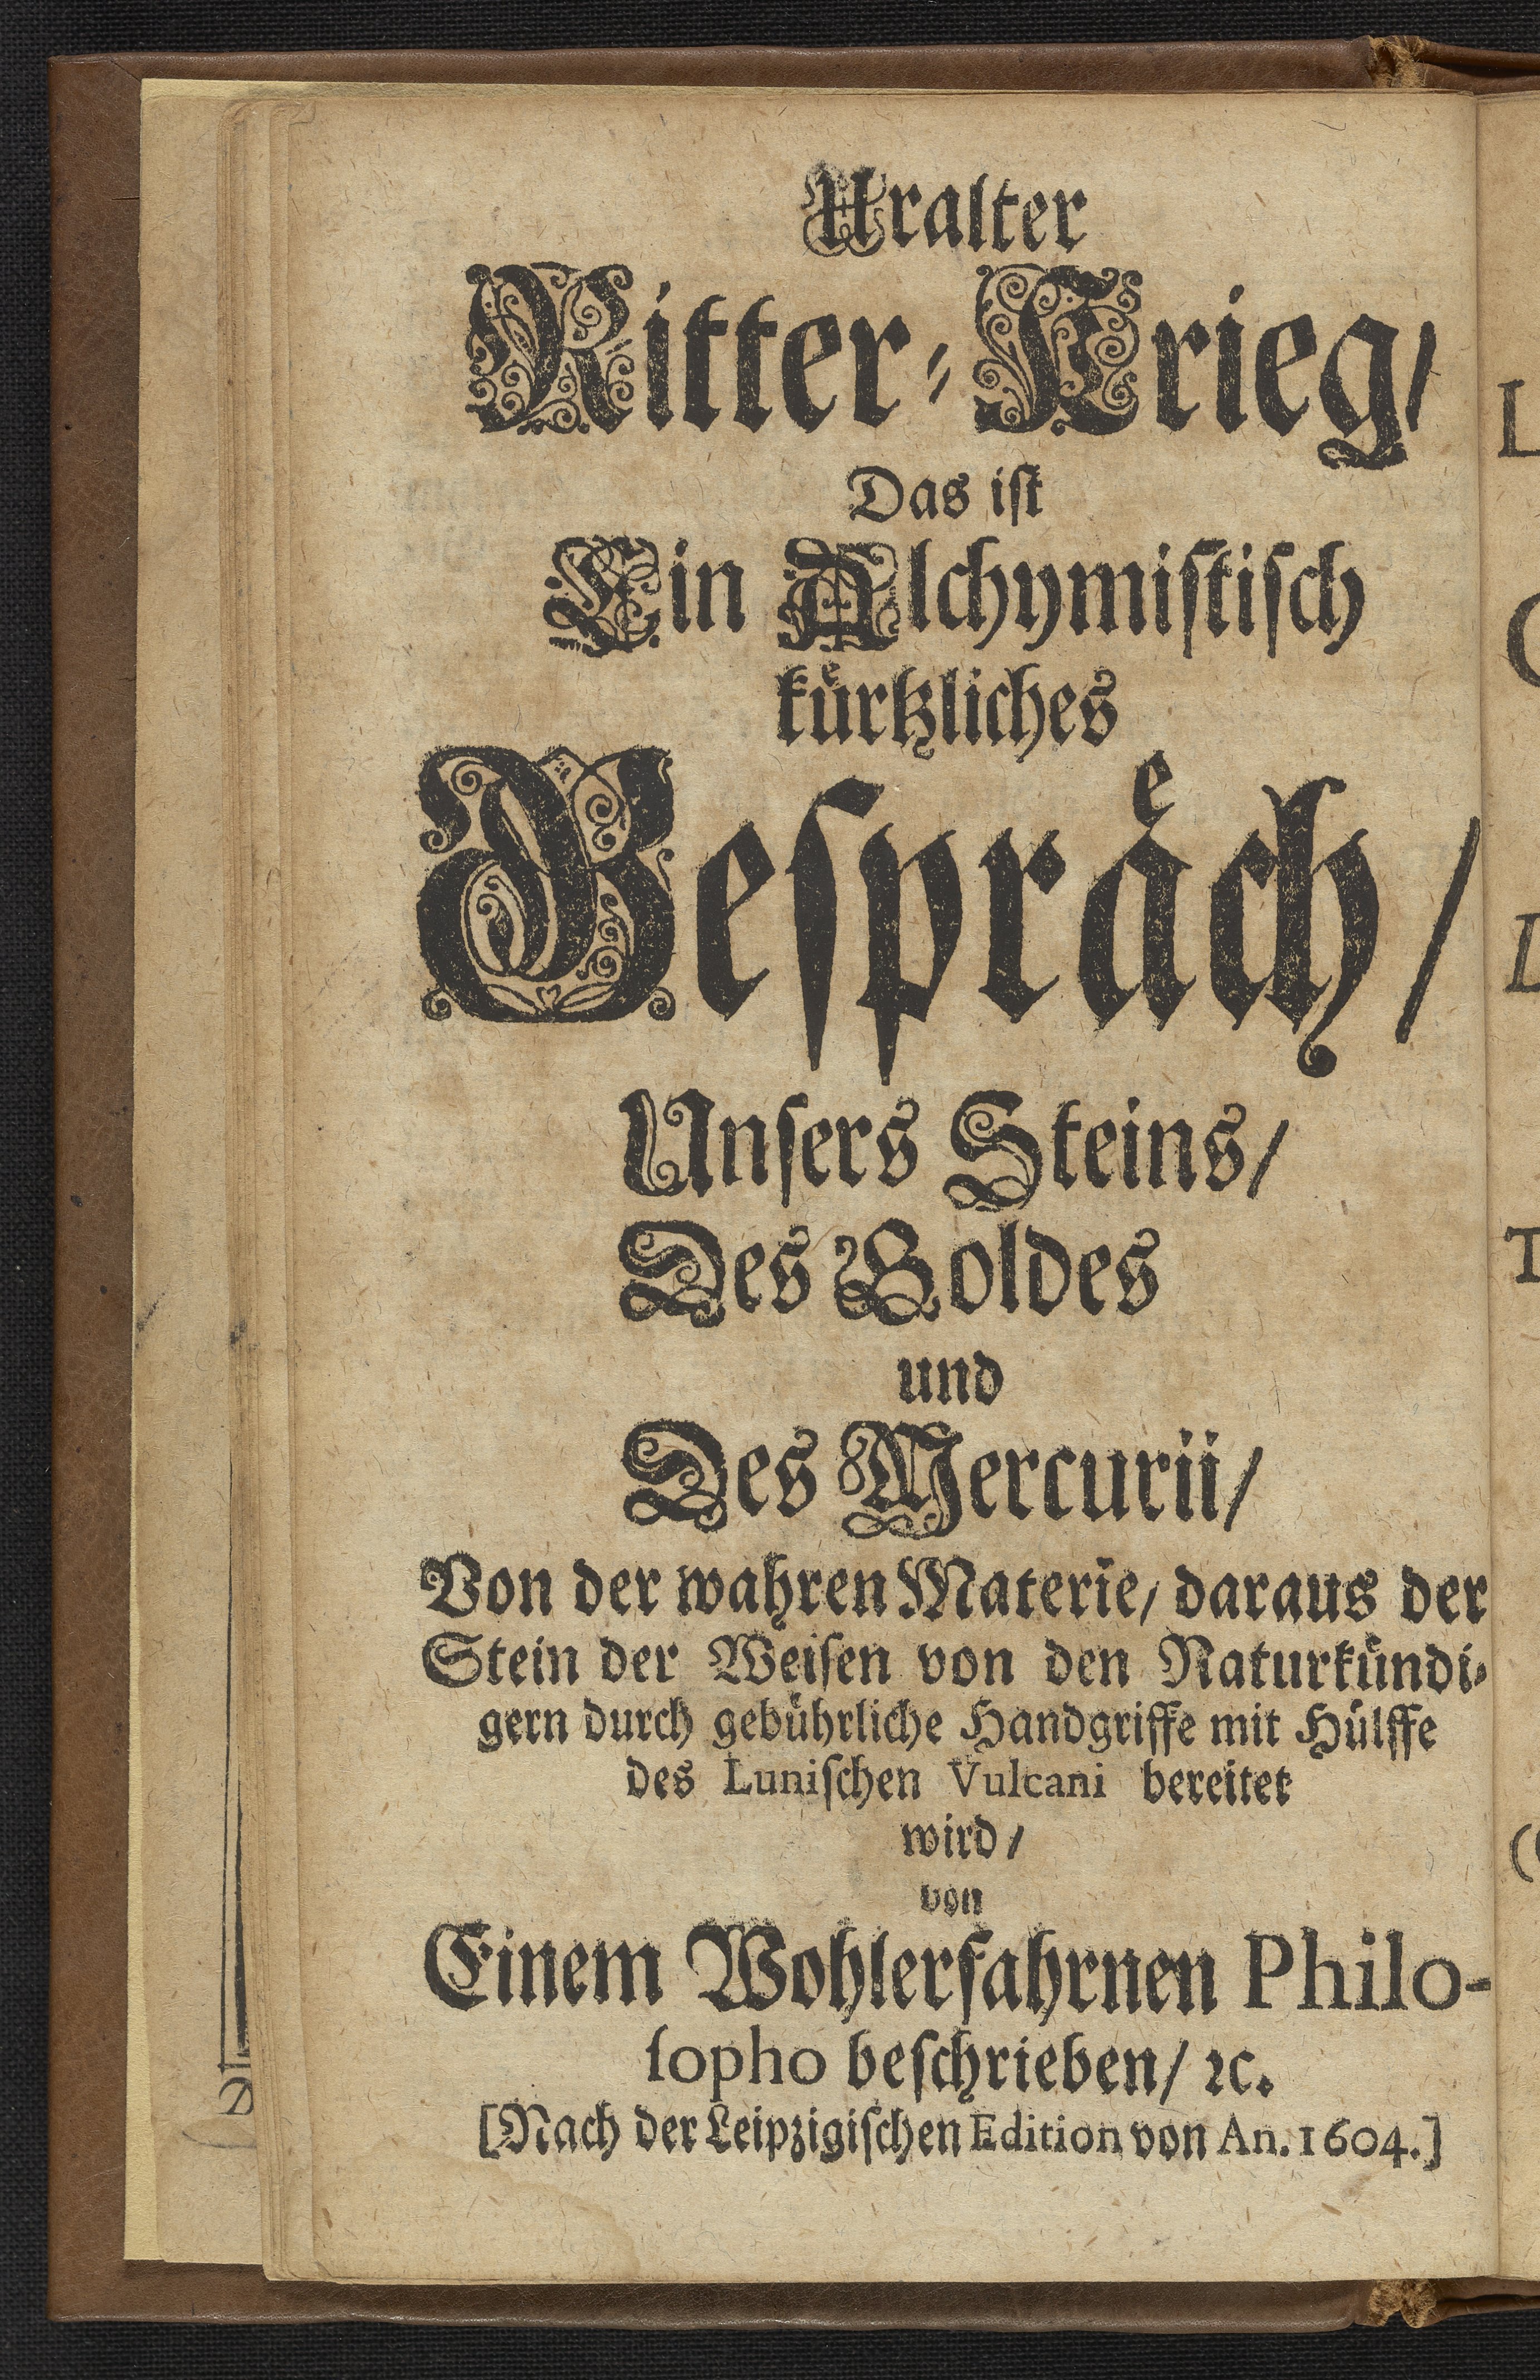 Uralter
Ritter-Krieg/
Das iſt
Ein Alchymiſtiſch
kuͤrtzliches
Geſpraͤch/
Unſers Steins/
Des Goldes
und
Des Mercurii/
Von der wahren Materie/ daraus der
Stein der Weiſen von den Naturkuͤndi-
gern durch gebuͤhrliche Handgriffe mit Huͤlffe
des Luniſchen Vulcani bereitet
wird/
von
Einem Wohlerfahrnen Philo-
ſopho beſchrieben/ ꝛc.
[Nach der Leipzigiſchen Edition von An. 1604.]